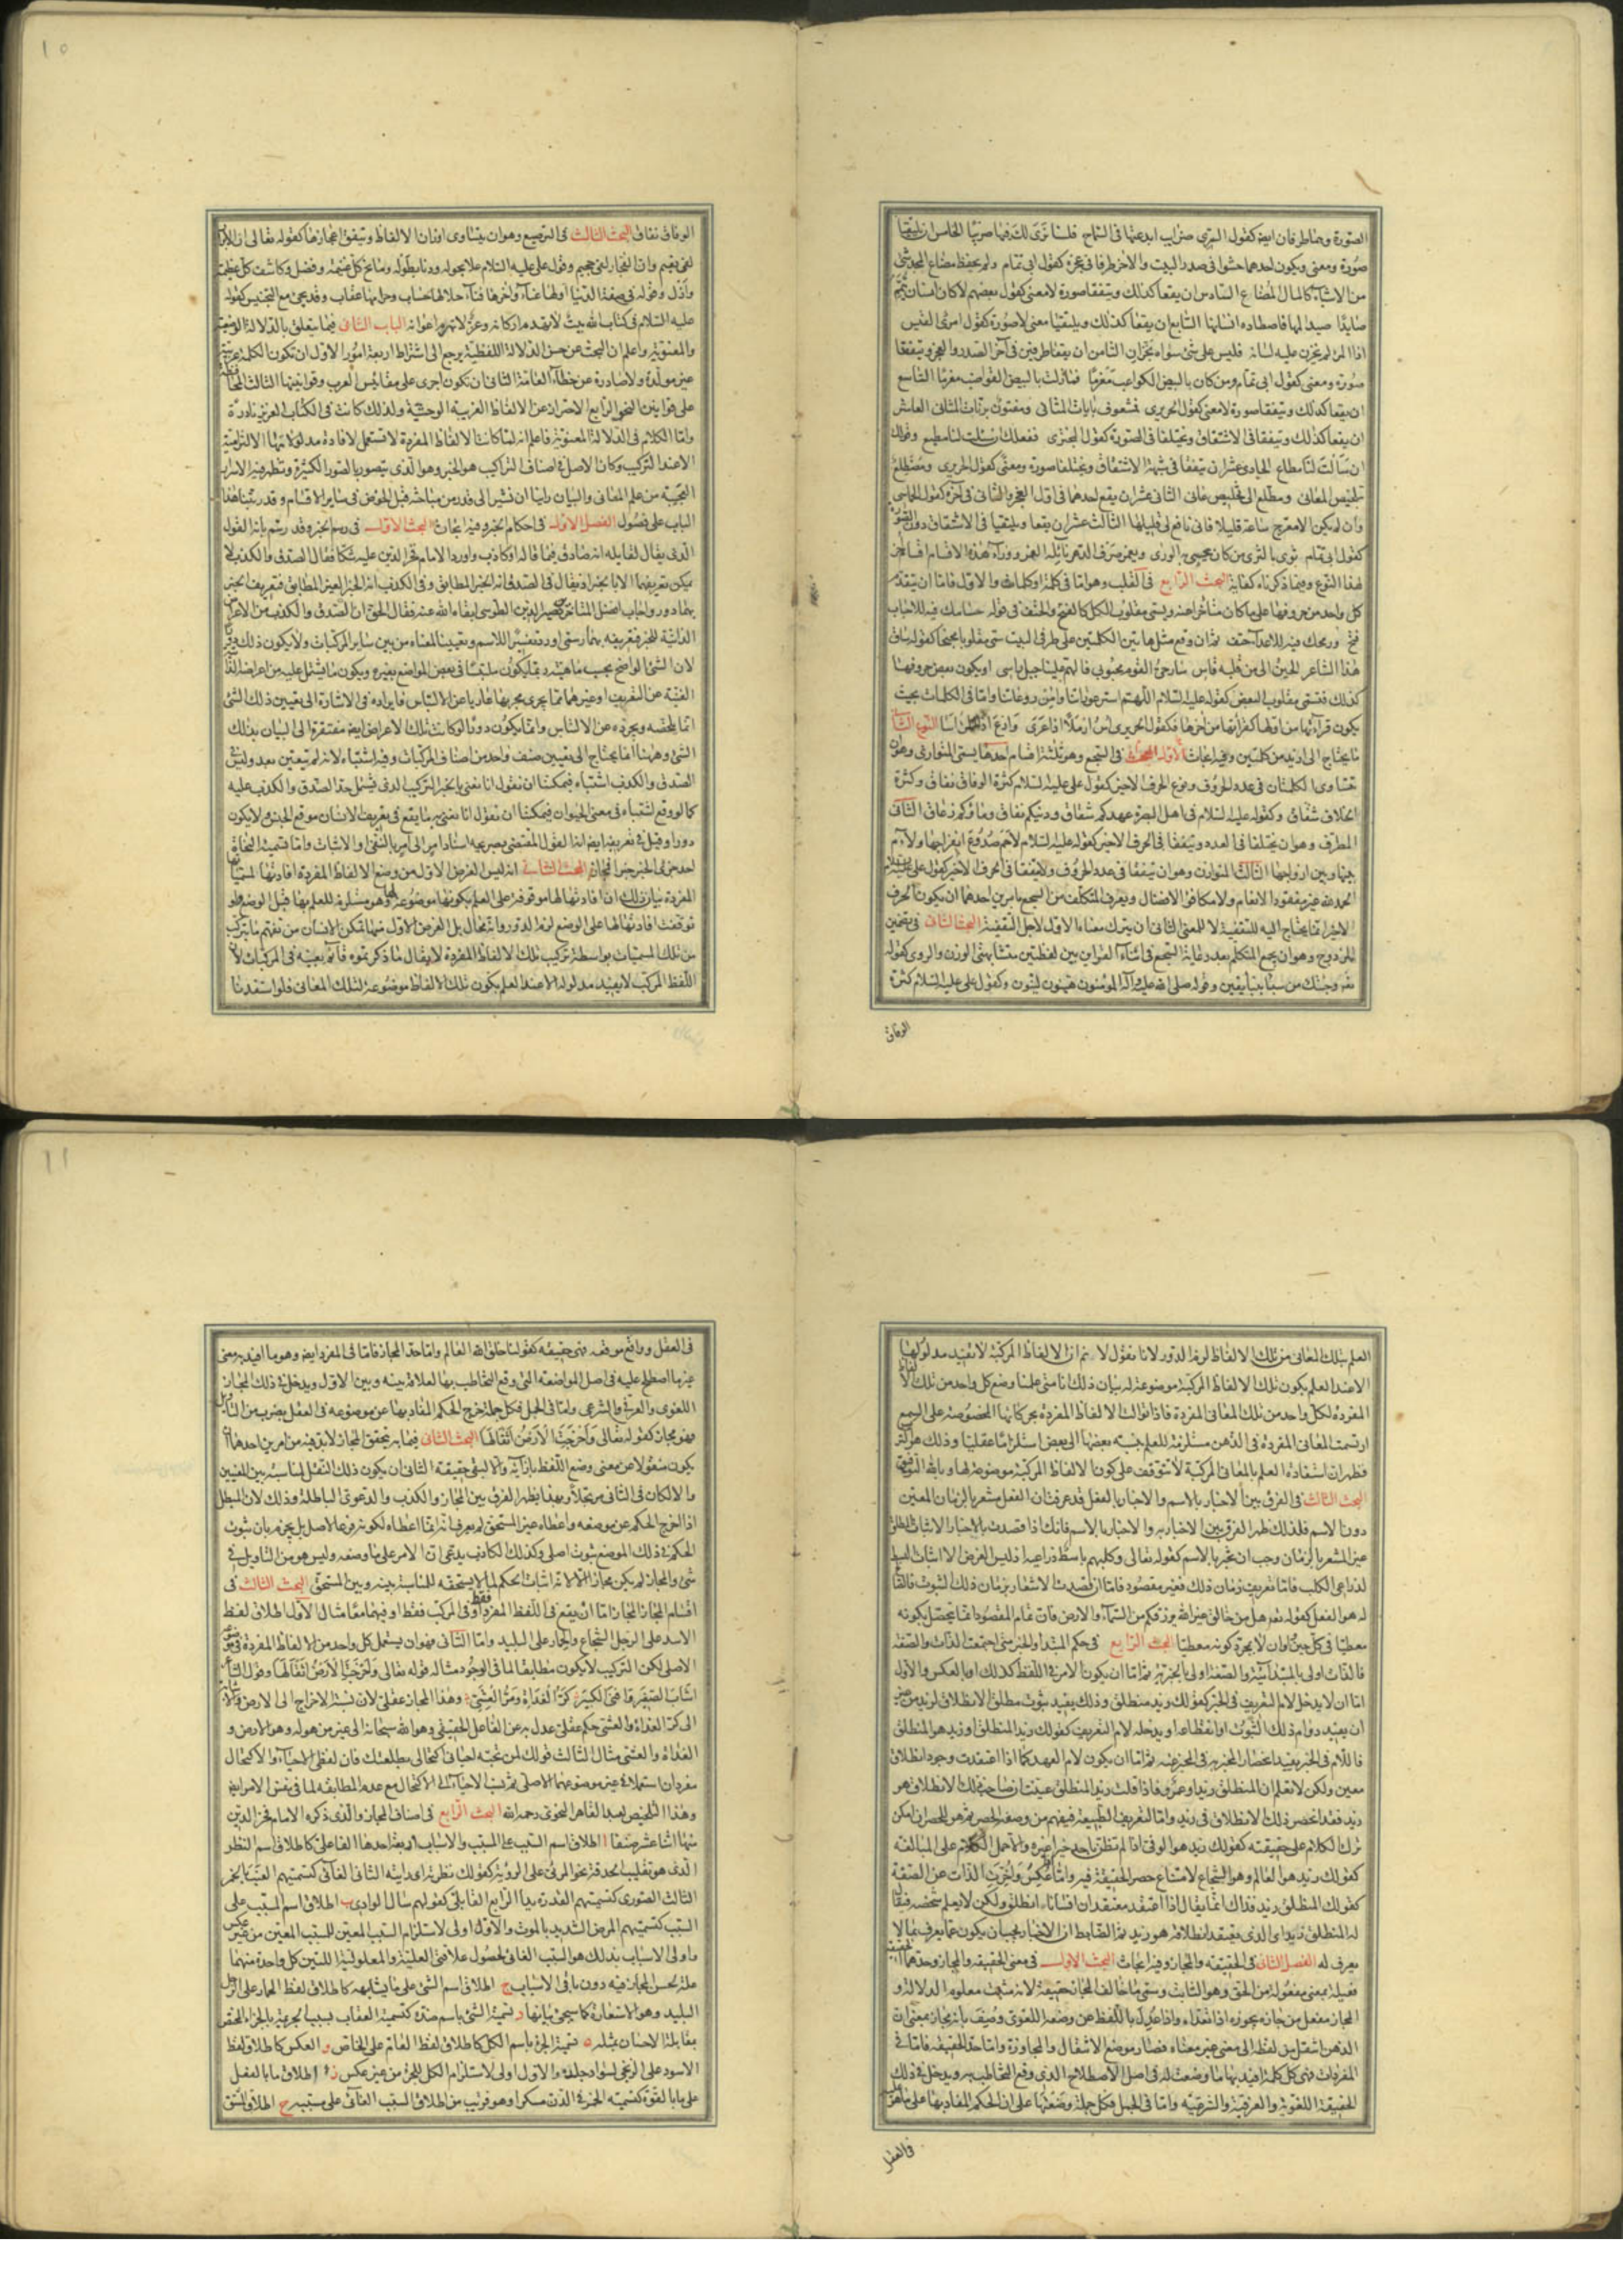 الصورة وهناطرفان ايضا كقول السرى ضرايب ابدعتها فى السماح فلسنا نرى لك فيها ضريبا الخامس ان يلتقيا
صورة ومعنى ويكون احدهما حشوا فى صدر البيت والاخر طرفا فى عجزه كقول ابى تمام ولم يحفظ مضاع المجد شئ
من الاشياء كالمال المضاع السادس ان يقعا كذلك ويتفقا صورة لا معنى كقول بعضهم لا كان انسان تيمم
صايدا صيد المها فاصطاده انسانها السابع ان يقعا كذلك ويلتقيا معنى لا صورة كقول امرئ القيس
اذا المرء لم يخزن عليه لسانه فليس على شئ سواه بخزان الثامن ان يقعا طرفين فى آخر الصدر والعجز ويتفقا
صورة ومعنى كقول ابى تمام ومن كان بالبيض الكواعب مغرما فما زلت بالبيض القواضب مغرما التاسع
ان يقعا كذلك ويتفقا صورة لا معنى كقول الحريرى فمشعوف بايات المثانى ومفتون برنات المثانى العاشر
ان يقعا كذلك ويتفقا فى الاشتقاق ويختلفا فى الصورة كقول البحترى ففعلك ان سئلت لنا مطيع وقولك
ان سألت لنا مطاع الحادى عشر ان يتفقا فى شبهة الاشتقاق ويختلفا صورة ومعنى كقول الحريرى ومضطلع
بتلخيص المعانى ومطلع الى تخليص عانى الثانى عشر ان يقع احدهما فى اول العجز والثانى فى آخره كقول الحماسى
وان لم يكن الا معرج ساعة قليلا فانى نافع لى قليلها الثالث عشر ان يقعا ويلتقيا فى الاشتقاق دون الصورة
كقول ابى تمام ثوى بالثرى من كان يحيى به الورى ويغمر صرف الدهر نائله الغمر ووراء هذه الاقسام اقسام اخر
لهذا النوع وفيما ذكرناه كفاية البحث الرابع فى القلب وهو اما فى كلمة او كلمات والاول فاما ان يتقدم
كل واحد من حروفها على ما كان متأخرا عنه ويسمى مقلوب الكل كالفتح والحتف فى قوله حسامك فيه للاحباب
فتح ورمحك فيه للاعداء حتف ثم ان وقع مثل هاتين الكلمتين على طرفى البيت سمى مقلوبا مجنحا كقوله ساق
هذا الشاعر الحين الى من قلبه قاس سار حى القوم محبوبى فالهم علينا جبل راسى او يكون بعض حروفهما
كذلك فتسمى مقلوب البعض كقوله عليه السلام اللهم استر عوراتنا وآمن روعاتنا واما فى الكلمات بحيث
يكون قرآءتها من اولها كقرآءتها من آخرها فكقول الحريرى اس ارملا اذا عرى وارع اذا المرء اسا النوع الثانى
ما يحتاج الى ازيد من كلمتين وفيه ابحاث الاول البحث فى السجع وهو ثلثة اقسام احدها يسمى المتوازى وهو ان
تتساوى الكلمتان فى عدد الحروف ونوع الحرف الاخير كقول على عليه السلام كثرة الوفاق نفاق وكثرة
الخلاف شقاق وكقوله عليه السلام فى اهل البصرة عهدكم شقاق ودينكم نفاق وماؤكم زعاق الثانى
المطرف وهو ان يختلفا فى العدد ويتفقا فى الحرف الاخير كقوله عليه السلام لاحم صدوع انفراجها ولاءم
بينها وبين ازواجها الثالث المتوازن وهو ان يتفقا فى عدد الحروف ولا يتفقا فى الحرف الاخير كقول على عليه السلام
الحمد لله غير مفقود الانعام ولا مكافئ الافضال ويعرف المتكلف من السجع بامرين احدهما ان يكون الحرف
الاخير انما يحتاج اليه للتقفية لا للمعنى الثانى ان يترك معناه الاول لاجل التقفية البحث الثانى فى تضمين
المزدوج وهو ان يجمع المتكلم بعد رعاية السجع فى اثناء القراين بين لفظتين متشابهتى الوزن والروى كقوله
تعه وجئتك من سبأ بنبأ يقين وقوله صلى الله عليه وآله المؤمنون هينون لينون وكقول على عليه السلام كثرة
الوفاق
١٠
الوفاق نفاق البحث الثالث فى الترصيع وهو ان يتساوى اوزان الالفاظ ويتفق اعجازها كقوله تعالى ان الابرار
لفى نعيم وان الفجار لفى جحيم وقول على عليه السلام علا بحوله ودنا بطوله ومانح كل غنيمة وفضل وكاشف كل عظيمة
وازل وقوله فى صفة الدنيا اولها عناء وآخرها فناء حلالها حساب وحرامها عقاب وقد يجئ مع التجنيس كقوله
عليه السلام فى كتاب الله بيت لا تهدم اركانه وعز لا تهزم اعوانه الباب الثانى فيما يتعلق بالدلالة الوضعية
والمعنوية واعلم ان البحث عن حسن الدلالة اللفظية يرجع الى اشتراط اربعة امور الاول ان تكون الكلمة عربية
غير مولدة ولا صادرة عن خطاء العامة الثانى ان تكون اجرى على مقائيس العرب وقوانينها الثالث المحافظة
على قوانين النحو الرابع الاحتراز عن الالفاظ الغريبة الوحشية ولذلك كانت فى الكتاب العزيز نادرة
واما الكلام فى الدلالة المعنوية فاعلم انه لما كانت الالفاظ المفردة لا تستعمل لافادة مدلولاتها الالتزامية
الا عند التركيب وكان الاصل فى اصناف التراكيب هو الخبر وهو الذى يتصور بالصور الكثيرة وتظهر فيه الاسرار
العجيبة من علم المعانى والبيان راينا ان نشير الى قدر من مباحثه قبل الخوض فى ساير الاقسام وقد رتبنا هذا
الباب على فصول الفصل الاول فى احكام الخبر وفيه ابحاث البحث الاول فى رسم الخبر وقد رسم بانه القول
الذى يقال لقايله انه صادق فيما قاله او كاذب واورد الامام فخر الدين عليه شكا فقال الصدق والكذب لا
يمكن تعريفهما الا بالخبر اذ يقال فى الصدق انه الخبر المطابق وفى الكذب انه الخبر الغير المطابق فتعريف الخبر
بهما دور واجاب افضل المتأخرين نصير الدين الطوسى ابقاه الله عنه فقال الحق ان الصدق والكذب من الاعراض
الذاتية للخبر فتعريفه بهما رسمى اورد تفسيرا للاسم وتعيينا لمعناه من بين ساير المركبات ولا يكون ذلك دورا
لان الشئ الواضح بحسب ماهيته ربما يكون ملتبسا فى بعض المواضع بغيره ويكون ما يشتمل عليه من اعراضه الذاتية
الغنية عن التعريف او غيرها مما يجرى مجريها عاريا عن الالتباس فايراده فى الاشارة الى تعيين ذلك الشئ
انما يلخصه ويجرده عن الالتباس وانما يكون دورا لو كانت تلك الاعراض ايضا مفتقرة الى البيان بذلك
الشئ وههنا انما يحتاج الى تعيين صنف واحد من اصناف المركبات وفيه اشتباه لانه لم يتعين بعد وليس فى
الصدق والكذب اشتباه فيمكننا ان نقول انا نعنى بالخبر التركيب الذى يشتمل حد الصدق والكذب عليه
كما لو وقع اشتباه فى معنى الحيوان فيمكننا ان نقول انا نعنى به ما يقع فى تعريف الانسان موقع الجنس ولا يكون
دورا وقيل فى تعريفه ايضا انه القول المقتضى بصريحه اسناد امر الى امر بالنفى او الاثبات واما تسمية النحاة
احد جزئى الخبر خبرا فمجاز البحث الثانى انه ليس الغرض الاول من وضع الالفاظ المفردة افادتها لمسمياتها
المفردة بيان ذلك ان افادتها لها موقوفة على العلم بكونها موضوعة لها وهو مستلزم للعلم بها قبل الوضع فلو
توقفت افادتها لها على الوضع لزم الدور وانه محال بل الغرض الاول منها تمكن الانسان من تفهم ما يتركب
من تلك المسميات بواسطة تركيب تلك الالفاظ المفردة لا يقال ما ذكرتموه قائم بعينه فى المركبات لان
اللفظ المركب لا يفيد مدلوله الا عند العلم بكون تلك الالفاظ موضوعة لتلك المعانى فلو استفدنا
العلم بتلك المعانى من تلك الالفاظ لزم الدور لانا نقول لا نم ان الالفاظ المركبة لا تفيد مدلولها
الا عند العلم بكون تلك الالفاظ المركبة موضوعة له بيان ذلك انا متى علمنا وضع كل واحد من تلك الالفاظ
المفردة لكل واحد من تلك المعانى المفردة فاذا توالت الالفاظ المفردة بحركاتها المخصوصة على السمع
ارتسمت المعانى المفردة فى الذهن مستلزمة للعلم بنسبة بعضها الى بعض استلزاما عقليا وذلك هو التركيب
فظهر ان استفادة العلم بالمعانى المركبة لا تتوقف على كون الالفاظ المركبة موضوعة لها وبالله التوفيق
البحث الثالث فى الفرق بين الاخبار بالاسم والاخبار بالفعل قد عرفت ان الفعل مشعر بالزمان المعين
دون الاسم فلذلك ظهر الفرق بين الاخبار به والاخبار بالاسم فانك اذا قصدت بالاخبار الاثبات المطلق
غير المشعر بالزمان وجب ان تخبر بالاسم كقوله تعالى وكلبهم باسط ذراعيه اذ ليس الغرض الا اثبات البسط
لذراعى الكلب فاما تعريف زمان ذلك فغير مقصود فاما ان قصدت الاشعار بزمان ذلك الثبوت فالصالح
له هو الفعل كقوله تعه هل من خالق غير الله يرزقكم من السماء والارض فان تمام المقصود انما يحصل بكونه
معطيا فى كل حين واوان لا بمجرد كونه معطيا البحث الرابع فى حكم المبتدا والخبر متى اجتمعت الذات والصفة
فالذات اولى بالمبتدائية والصفة اولى بالخبرية ثم اما ان يكون الامر فى اللفظ كذلك او بالعكس والاول
اما ان لا يدخل لام التعريف فى الخبر كقولك زيد منطلق وذلك يفيد ثبوت مطلق الانطلاق لزيد من غير
ان يفيد دوام ذلك الثبوت او انقطاعه او يدخله لام التعريف كقولك زيد المنطلق او زيد هو المنطلق
فاللام فى الخبر يفيد انحصار المخبر به فى المخبر عنه ثم اما ان يكون لام العهد كما اذا اعتقدت وجود انطلاق
معين ولكن لا تعلم ان المنطلق زيد او عمرو فاذا قلت زيد المنطلق عينت ان صاحب ذلك الانطلاق هو
زيد فقد انحصر ذلك الانطلاق فى زيد واما لتعريف الطبيعة فيفهم من وصفه الحصر ثم هو للحصر ان امكن
ترك الكلام على حقيقته كقولك زيد هو الوفى اذا لم تظن باحد خيرا غيره والا حمل الكلام على المبالغة
كقولك زيد هو العالم وهو الشجاع لامتناع حصر الحقيقة فيه واما العكس واخرت الذات عن الصفة
كقولك المنطلق زيد فذاك انما يقال اذا اعتقد معتقد ان انسانا انطلق ولكن لا يعلم شخصه فيقال
له المنطلق زيد اى الذى يعتقد انطلاقه هو زيد ثم الضابط ان الاخبار يجب ان يكون عما يعرف بما لا
يعرف له الفصل الثانى فى الحقيقة والمجاز وفيه ابحاث البحث الاول فى معنى الحقيقة والمجاز وحدهما الحقيقة
فعيلة بمعنى مفعولة من الحق وهو الثابت وسمى ما خالف المجاز حقيقة لانه مثبت معلوم الدلالة و
المجاز مفعل من جازه يجوزه اذا تعداه واذا عدل باللفظ عن وضعه اللغوى وصف بانه مجاز بمعنى ان
الذهن انتقل من لفظه الى معنى غير معناه فصار موضع الانتقال والمجاوزة واما حد الحقيقة فاما فى
المفردات فهى كل كلمة افيد بها ما وضعت له فى اصل الاصطلاح الذى وقع التخاطب به ويدخل فى ذلك
الحقيقة اللغوية والعرفية والشرعية واما فى الجمل فكل جملة وضعتها على ان الحكم المفاد بها على ما هو
فى العقل
١١
فى العقل وواقع موقعه فهى حقيقة كقولنا خلق الله العالم واما حد المجاز فاما فى المفرد ايضا وهو ما افيد به معنى
غير ما اصطلح عليه فى اصل المواضعة التى وقع التخاطب بها لعلاقة بينه وبين الاول ويدخل فى ذلك المجاز
اللغوى والعرفى والشرعى واما فى الجمل فكل جملة خرج الحكم المفاد بها عن موضوعه فى العقل بضرب من التأويل
فهو مجاز كقوله تعالى واخرجت الارض اثقالها البحث الثانى فيما به يتحقق المجاز لا بد فيه من امرين احدهما ان
يكون منقولا عن معنى وضع اللفظ بازائه والا لبقى حقيقة الثانى ان يكون ذلك النقل لمناسبة بين المعنيين
والا لكان فى الثانى مرتجلا وبهذا يظهر الفرق بين المجاز والكذب والدعوى الباطلة وذلك لان المبطل
اذا اخرج الحكم عن موضعه واعطاه غير المستحق لم يعرف انه انما اعطاه لكونه فرعا لاصل بل يجزم بان ثبوت
الحكم فى ذلك الموضع ثبوت اصلى وكذلك الكاذب يدعى ان الامر على ما وضعه وليس هو من التاويل فى
شئ والمجاز لم يكن مجازا الا لانه اثبات الحكم لما لا يستحقه للمناسبة بينه وبين المستحق البحث الثالث فى
اقسام المجاز المجاز اما ان يقع فى اللفظ المفرد فقط او فى المركب فقط او فيهما معا مثال الاول اطلاق لفظ
الاسد على الرجل الشجاع والحمار على البليد واما الثانى فهو ان يستعمل كل واحد من الالفاظ المفردة فى موضوعه
الاصلى لكن التركيب لا يكون مطابقا لما فى الوجود مثاله قوله تعالى واخرجت الارض اثقالها وقول الشاعر
اشاب الصغير وافنى الكبير كر الغداة ومر العشى وهذا المجاز عقلى لان نسبة الاخراج الى الارض والاشابة
الى كر الغداة والعشى حكم عقلى عدل به عن الفاعل الحقيقى وهو الله سبحانه الى غير من هو له وهو الارض و
الغداة والعشى مثال الثالث قولك لمن تحبه احيانى اكتحالى بطلعتك فان لفظى الاحياء والاكتحال
مفردان استعملا فى غير موضوعهما الاصلى ثم نسب الاحياء الى الاكتحال مع عدم المطابقة لما فى نفس الامر ايضا
وهذا التلخيص لعبد القاهر النحوى رحمه الله البحث الرابع فى اصناف المجاز والذى ذكره الامام فخر الدين
منها اثنا عشر صنفا ا اطلاق اسم السبب على المسبب والاسباب اربعة احدها الفاعلى كاطلاق اسم النظر
الذى هو تقليب الحدقة نحو المرئى على الرؤية كقولك نظرته اى رايته الثانى الغائى كتسميتهم العنب بالخمر
الثالث الصورى كتسميتهم القدرة يدا الرابع القابلى كقولهم سال الوادى ب اطلاق اسم المسبب على
السبب كتسميتهم المرض الشديد بالموت والاول اولى لاستلزام السبب المعين للمسبب المعين من غير عكس
واولى الاسباب بذلك هو السبب الغائى لحصول علاقتى العلية والمعلولية اللتين كل واحدة منهما
علة لحسن المجاز فيه دون باقى الاسباب ج اطلاق اسم الشئ على ما يشابهه كاطلاق لفظ الحمار على الرجل
البليد وهو الاستعارة كما سيجئ بيانها د تسمية الشئ باسم ضده كتسمية العقاب بسبب الجريمة بالجزاء المختص
بمقابلة الاحسان بمثله ه تسمية الجزء باسم الكل كاطلاق لفظ العام على الخاص و العكس كاطلاق لفظ
الاسود على الزنجى لسواد جلده والاول اولى لاستلزام الكل للجزء من غير عكس ز اطلاق ما بالفعل
على ما بالقوة كتسمية الخمر فى الدن مسكرا وهو قريب من اطلاق السبب الغائى على مسببه ح اطلاق المشتق